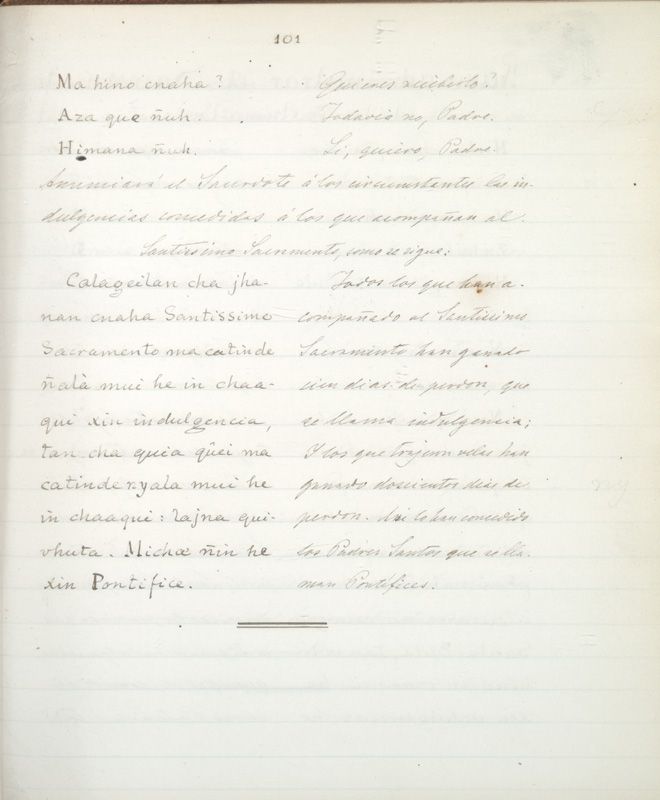 101
Ma hino cnaha? Quieres recibirlo?
Aza que ñuh. Todavia no, Padre.
Himana ñuh. Si, quiero, Padre.
Anunciará el Sacerdote á los circumstantes las in-
dulgencias concedidas á los que acompañan al
Santissimo Sacramento, como se sigue:
Calageilan cha jha- Todos los que han a-
nan cnaha Santissimo compañado al Santissimo
Sacramento ma catinde Sacramento han ganado
ñalà mui he in chaa- cien dias de perdon, que
qui xin indulgencia, se llama indulgencia;
tan cha quia qüei ma Y los que trajeron velas han
catinde nyala mui he ganado doscientos dias de
in chaaqui: lajna qui- perdon. Asi lo han concedido
vhuta. Micha ñin he los Padres Santos que se lla-
xin Pontifice. man Pontífices.